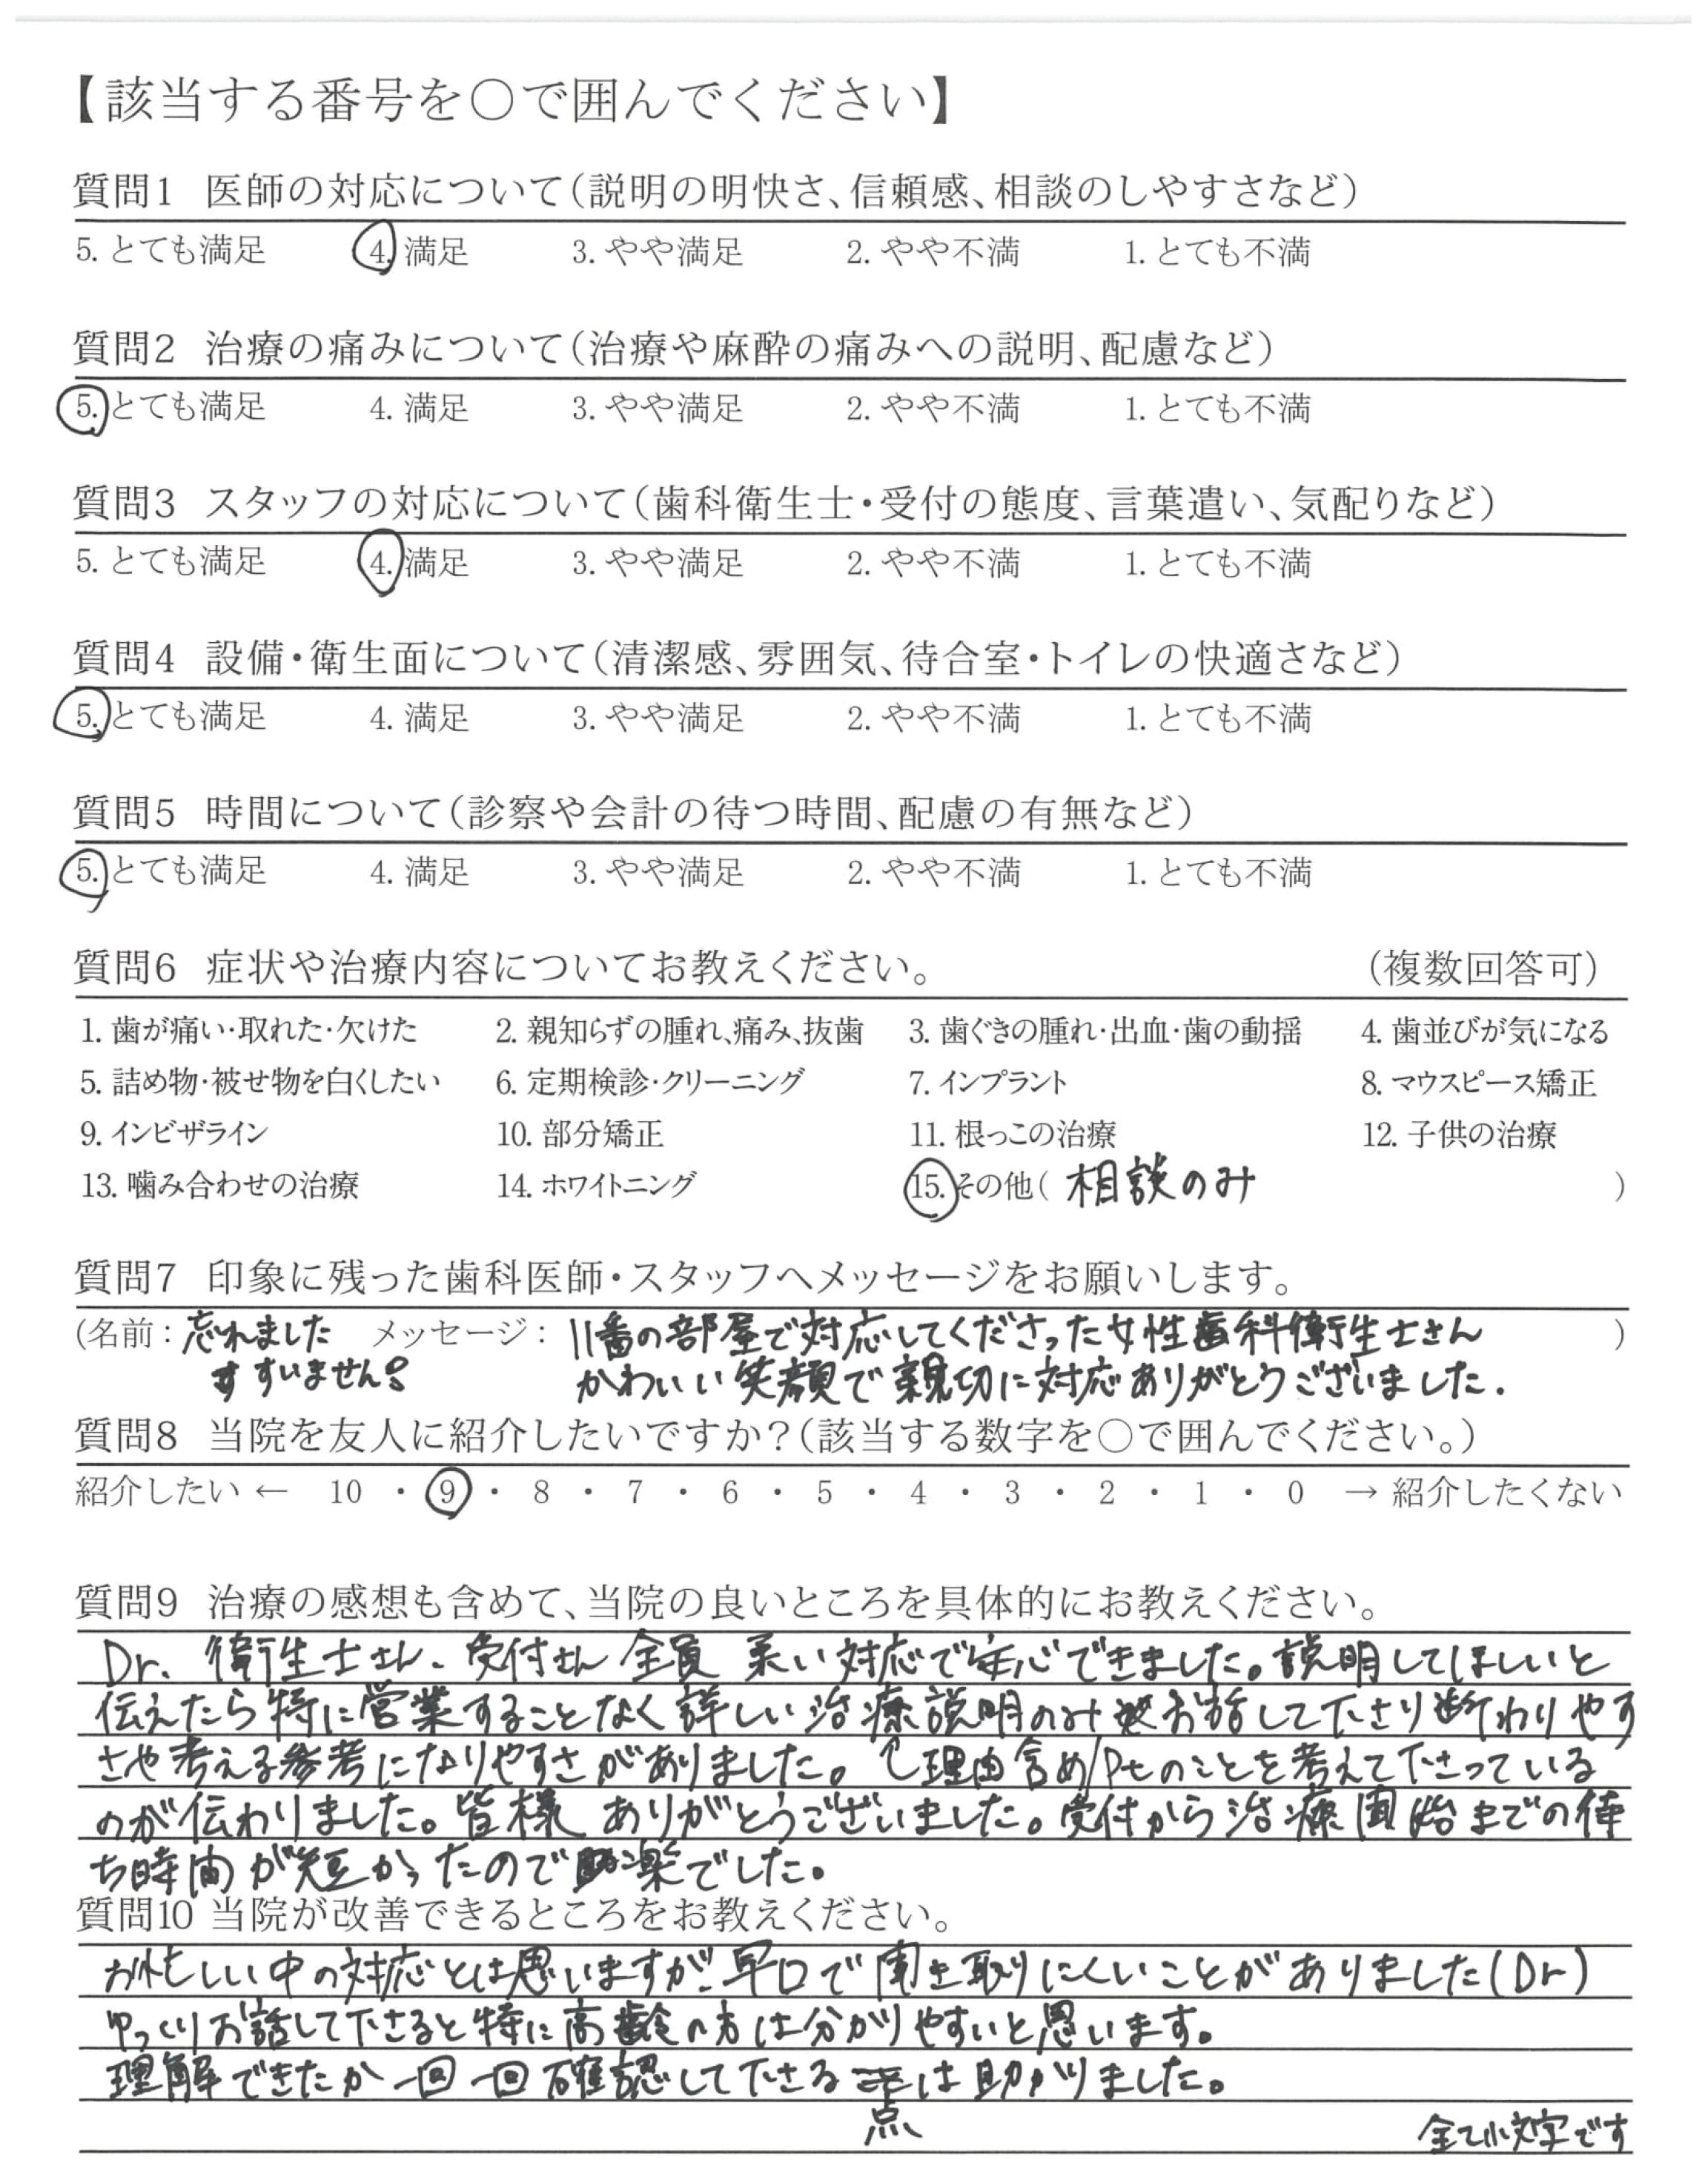 【該当する番号を○で囲んでください】
質問1 医師の対応について(説明の明快さ、信頼感、相談のしやすさなど)
5. とても満足 4. 満足 3. やや満足 2. やや不満 1. とても不満
質問2 治療の痛みについて(治療や麻酔の痛みへの説明、配慮など)
5. とても満足 4. 満足 3. やや満足 2. やや不満 1. とても不満
質問3 スタッフの対応について(歯科衛生士・受付の態度、言葉遣い、気配りなど)
5. とても満足 4. 満足 3. やや満足 2. やや不満 1. とても不満
質問4 設備・衛生面について(清潔感、雰囲気、待合室・トイレの快適さなど)
5. とても満足 4. 満足 3. やや満足 2. やや不満 1. とても不満
質問5 時間について(診察や会計の待つ時間、配慮の有無など)
5. とても満足 4. 満足 3. やや満足 2. やや不満 1. とても不満
質問6 症状や治療内容についてお教えください。 (複数回答可)
1. 歯が痛い・取れた・欠けた 2. 親知らずの腫れ、痛み、抜歯 3. 歯ぐきの腫れ・出血・歯の動揺 4. 歯並びが気になる
5. 詰め物・被せ物を白くしたい 6. 定期検診・クリーニング 7. インプラント 8. マウスピース矯正
9. インビザライン 10. 部分矯正 11. 根っこの治療 12. 子供の治療
13. 噛み合わせの治療 14. ホワイトニング 15. その他( 相談のみ )
質問7 印象に残った歯科医師・スタッフへメッセージをお願いします。
(名前 : 忘れました メッセージ : 11番の部屋で対応してくださった女性歯科衛生士さん )
すいません! かわいい笑顔で親切に対応ありがとうございました.
質問8 当院を友人に紹介したいですか?(該当する数字を○で囲んでください。)
紹介したい ← 10 ・ 9 ・ 8 ・ 7 ・ 6 ・ 5 ・ 4 ・ 3 ・ 2 ・ 1 ・ 0 → 紹介したくない
質問9 治療の感想も含めて、当院の良いところを具体的にお教えください。
Dr. 衛生士さん、受付さん 全員 柔い対応で安心できました。説明してほしいと
伝えたら特に営業することなく詳しい治療説明のみお話して下さり断わりやす
さや考える参考になりやすさがありました。理由含め/Ptのことを考えて下さっている
のが伝わりました。皆様 ありがとうございました。受付から治療開始までの待
ち時間が短かったので楽でした。
質問10 当院が改善できるところをお教えください。
お忙しい中の対応とは思いますが、早口で聞き取りにくいことがありました(Dr)
ゆっくりお話して下さると特に高齢の方は分かりやすいと思います。
理解できたか一回一回確認して下さる は助かりました。
点
全て小文字です